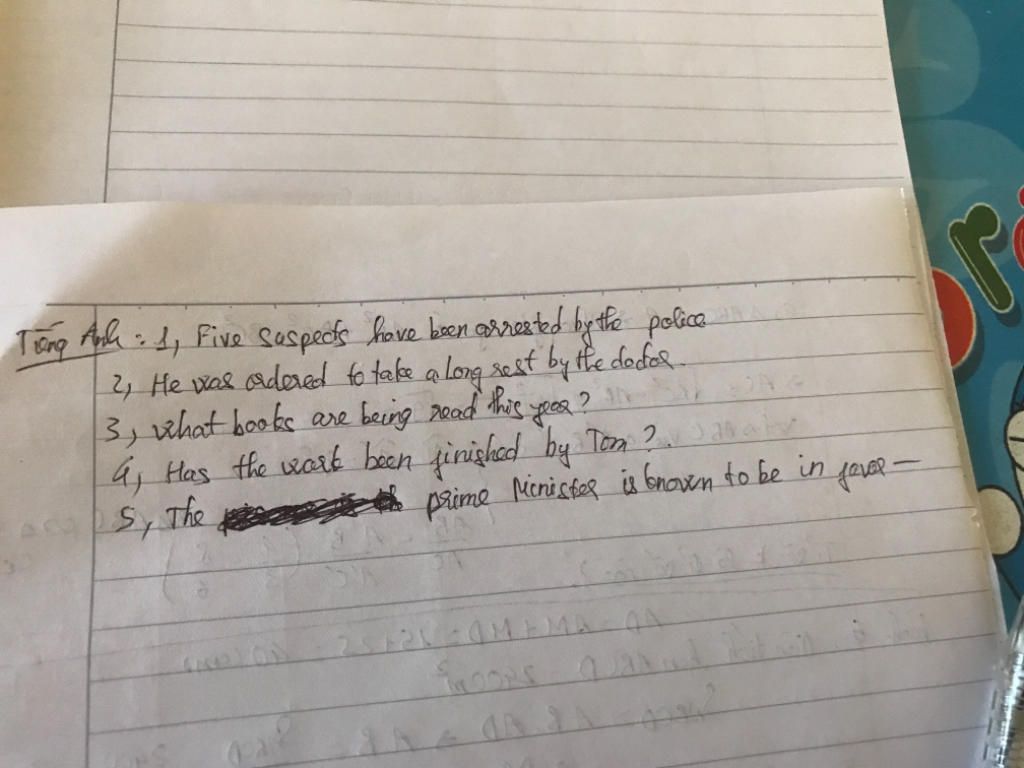 Tiếng Anh : 1, Five suspects have been arrested by the police
2, He was ordered to take a long rest by the doctor.
3, what books are being read this year?
4, Has the work been finished by Tom?
5, The prime Minister is known to be in favor —
ri